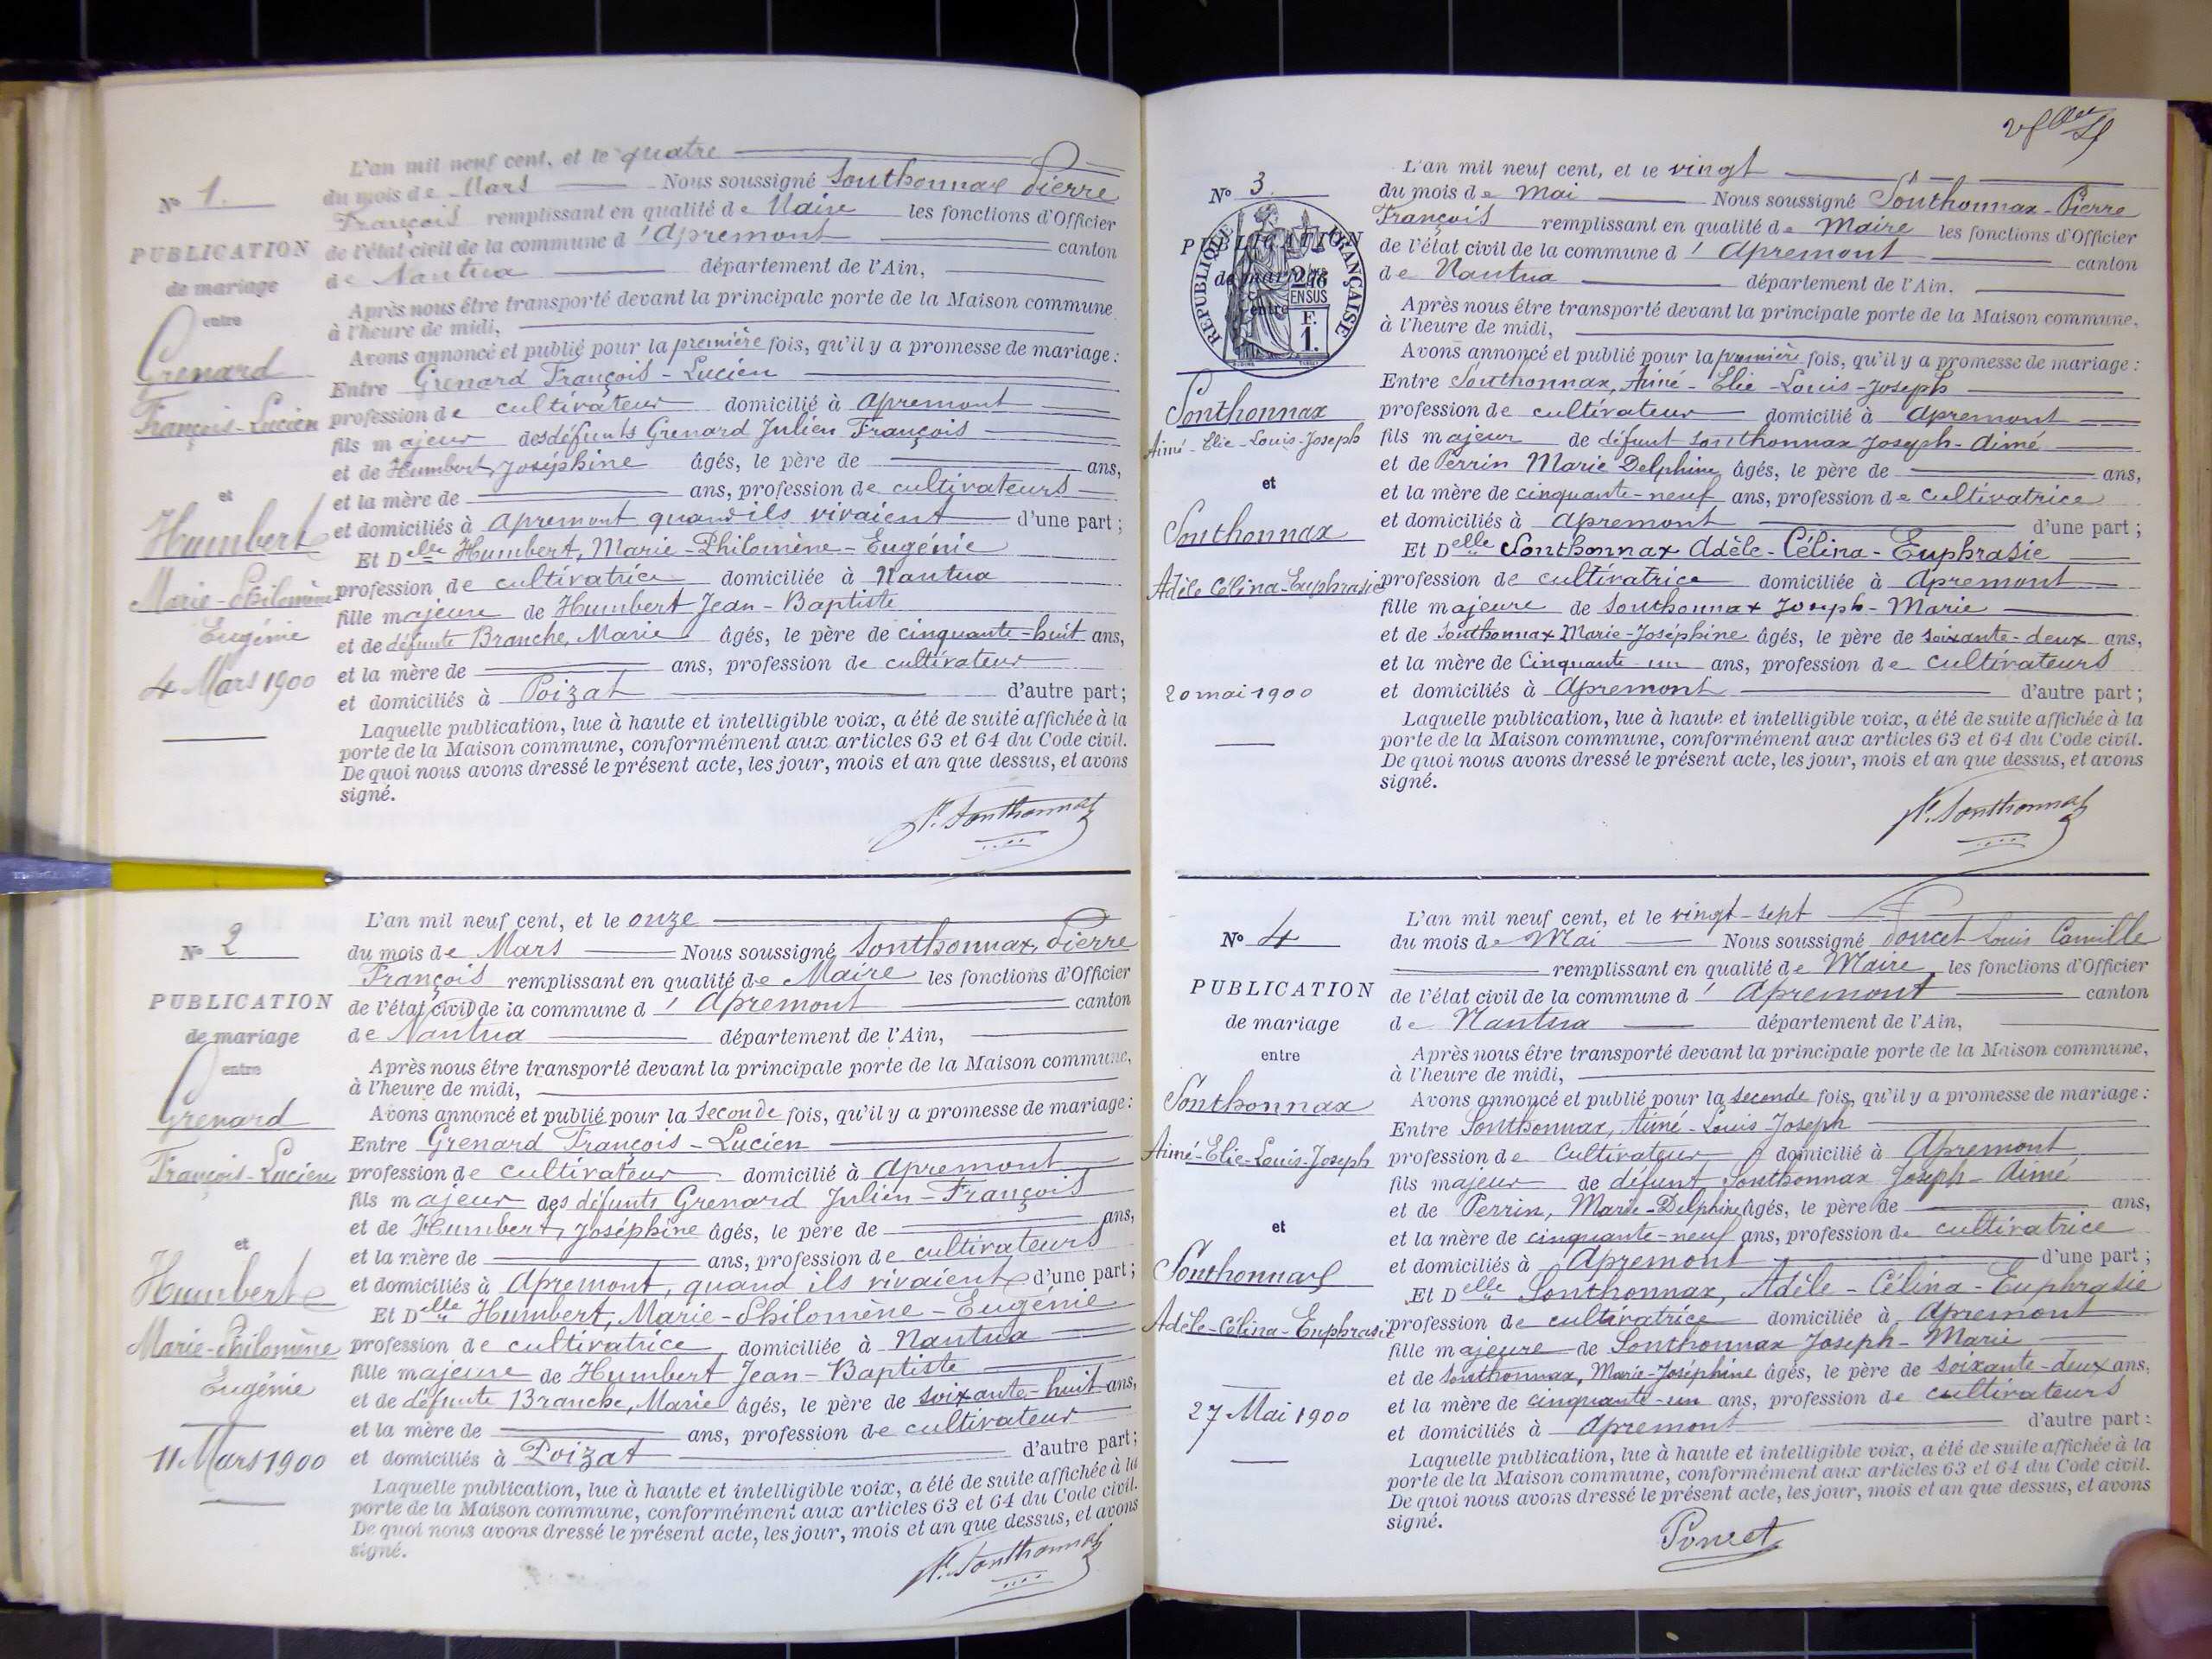 N° 1.
PUBLICATION
de mariage
entre
Grenard
François-Lucien
et
Humbert
Marie-Philomène
Eugénie
4 Mars 1900
L'an mil neuf cent, et le quatre
du mois de Mars Nous soussigné Sonthonnax Pierre
François remplissant en qualité de Maire les fonctions d'Officier
de l'état civil de la commune d'Apremont canton
de Nantua département de l'Ain,
Après nous être transporté devant la principale porte de la Maison commune
à l'heure de midi,
Avons annoncé et publié pour la première fois, qu'il y a promesse de mariage :
Entre Grenard François-Lucien
profession de cultivateur domicilié à Apremont
fils majeur des défunts Grenard Julien François
et de Humbert, Joséphine âgés, le père de ans,
et la mère de ans, profession de cultivateurs
et domiciliés à Apremont quand ils vivaient d'une part ;
Et Delle Humbert, Marie-Philomène-Eugénie
profession de cultivatrice domiciliée à Nantua
fille majeure de Humbert Jean-Baptiste
et de défunte Branche, Marie âgés, le père de cinquante-huit ans,
et la mère de ans, profession de cultivateur
et domiciliés à Poizat d'autre part ;
Laquelle publication, lue à haute et intelligible voix, a été de suite affichée à la
porte de la Maison commune, conformément aux articles 63 et 64 du Code civil.
De quoi nous avons dressé le présent acte, les jour, mois et an que dessus, et avons
signé.
P. Sonthonnax
N° 2
PUBLICATION
de mariage
entre
Grenard
François-Lucien
et
Humbert
Marie-Philomène
Eugénie
11 Mars 1900
L'an mil neuf cent, et le onze
du mois de Mars Nous soussigné Sonthonnax, Pierre
François remplissant en qualité de Maire les fonctions d'Officier
de l'état civil de la commune d'Apremont canton
de Nantua département de l'Ain,
Après nous être transporté devant la principale porte de la Maison commune,
à l'heure de midi,
Avons annoncé et publié pour la seconde fois, qu'il y a promesse de mariage :
Entre Grenard François-Lucien
profession de cultivateur domicilié à Apremont
fils majeur des défunts Grenard Julien-François
et de Humbert, Joséphine âgés, le père de ans,
et la mère de ans, profession de cultivateurs
et domiciliés à Apremont, quand ils vivaient d'une part ;
Et Delle Humbert, Marie-Philomène-Eugénie
profession de cultivatrice domiciliée à Nantua
fille majeure de Humbert Jean-Baptiste
et de défunte Branche, Marie âgés, le père de soixante-huit ans,
et la mère de ans, profession de cultivateur
et domiciliés à Poizat d'autre part ;
Laquelle publication, lue à haute et intelligible voix, a été de suite affichée à la
porte de la Maison commune, conformément aux articles 63 et 64 du Code civil.
De quoi nous avons dressé le présent acte, les jour, mois et an que dessus, et avons
signé.
P. Sonthonnax
N° 3
PUBLICATION
de mariage
entre
RÉPUBLIQUE FRANÇAISE
2/10
EN SUS
F.
1.
Sonthonnax
Aimé-Elie-Louis-Joseph
et
Sonthonnax
Adèle Célina-Euphrasie
20 mai 1900
L'an mil neuf cent, et le vingt
du mois de Mai Nous soussigné Sonthonnax-Pierre
François remplissant en qualité de Maire les fonctions d'Officier
de l'état civil de la commune d'Apremont canton
de Nantua département de l'Ain.
Après nous être transporté devant la principale porte de la Maison commune,
à l'heure de midi,
Avons annoncé et publié pour la première fois, qu'il y a promesse de mariage :
Entre Sonthonnax, Aimé-Elie-Louis-Joseph
profession de cultivateur domicilié à Apremont
fils majeur de défunt Sonthonnax Joseph-Aimé
et de Perrin Marie Delphine âgés, le père de ans,
et la mère de cinquante-neuf ans, profession de cultivatrice
et domiciliés à Apremont d'une part ;
Et Delle Sonthonnax Adèle-Célina-Euphrasie
profession de cultivatrice domiciliée à Apremont
fille majeure de Sonthonnax Joseph-Marie
et de Sonthonnax Marie-Joséphine âgés, le père de soixante-deux ans,
et la mère de Cinquante-un ans, profession de cultivateurs
et domiciliés à Apremont d'autre part ;
Laquelle publication, lue à haute et intelligible voix, a été de suite affichée à la
porte de la Maison commune, conformément aux articles 63 et 64 du Code civil.
De quoi nous avons dressé le présent acte, les jour, mois et an que dessus, et avons
signé.
P. Sonthonnax
N° 4
PUBLICATION
de mariage
entre
Sonthonnax
Aimé-Elie-Louis-Joseph
et
Sonthonnax
Adèle-Célina-Euphrasie
27 Mai 1900
L'an mil neuf cent, et le vingt-sept
du mois de Mai Nous soussigné Poncet Louis Camille
remplissant en qualité de Maire, les fonctions d'Officier
de l'état civil de la commune d'Apremont canton
de Nantua département de l'Ain,
Après nous être transporté devant la principale porte de la Maison commune,
à l'heure de midi,
Avons annoncé et publié pour la seconde fois, qu'il y a promesse de mariage :
Entre Sonthonnax, Aimé-Louis-Joseph
profession de Cultivateur domicilié à Apremont
fils majeur de défunt Sonthonnax Joseph-Aimé
et de Perrin, Marie-Delphine âgés, le père de ans,
et la mère de cinquante-neuf ans, profession de cultivatrice
et domiciliés à Apremont d'une part ;
Et Delle Sonthonnax, Adèle-Célina-Euphrasie
profession de cultivatrice domiciliée à Apremont
fille majeure de Sonthonnax Joseph-Marie
et de Sonthonnax, Marie-Joséphine âgés, le père de soixante-deux ans,
et la mère de cinquante-un ans, profession de cultivateurs
et domiciliés à Apremont d'autre part :
Laquelle publication, lue à haute et intelligible voix, a été de suite affichée à la
porte de la Maison commune, conformément aux articles 63 et 64 du Code civil.
De quoi nous avons dressé le présent acte, les jour, mois et an que dessus, et avons
signé.
Poncet